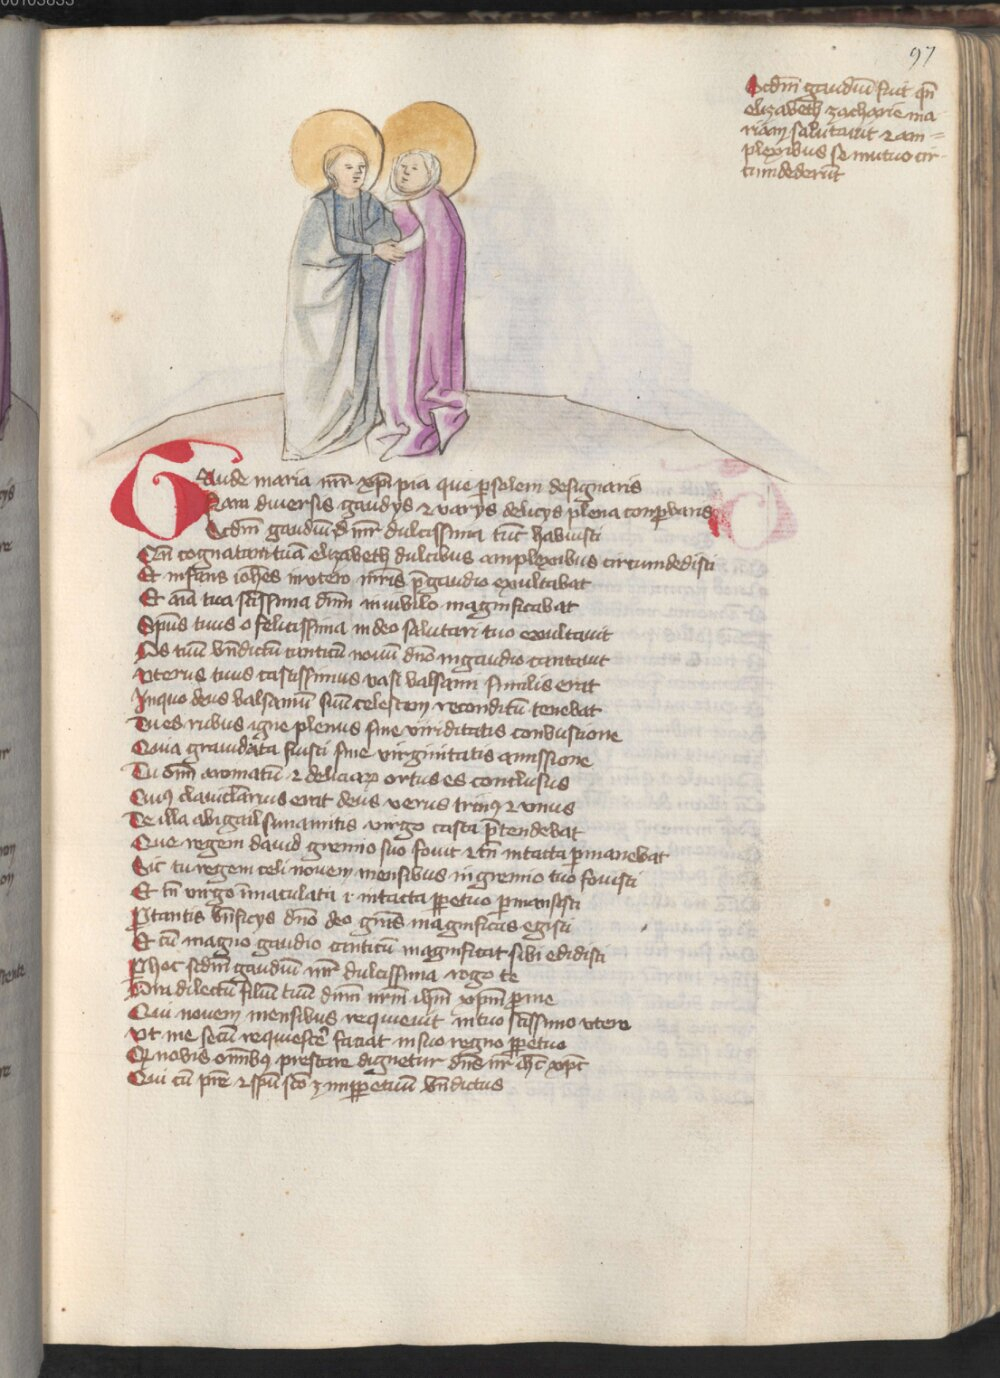 97
Scdm̄ gaudiū fuit qn̄
elizabeth zacharie ma
riam salutauit ⁊ am=
plexibus se mutuo cir-
cumdederūt
Gaude maria mr̄ xp̄i pia que p̱ solem designaris
Nam diuersis gaudys ⁊ varys delicys plena conp̱baris
Scdm̄ gaudiū mr̄ dulcissima tūc habuisti
Cū cognatam tuā elizabeth dulcibus amplexibus circumdedisti
Et infans ioh̄es in vtero mr̄is p̄ gaudio exultabat
Et aīa tua sc̄issima dn̄m in iubilo magnificabat
Spūs tuus o felicissima in deo salutari tuo exultauit
Os tuū bn̄dictū canticū nouū dn̄o in gaudio cantauit
Vterus tuus castissimus vasi balsami similis erat
In quo deus balsamū suū celestem reconditū tenebat
Tu es rubus igne plenus sine viriditatis conbustione
Quia grauidata fuisti sine virginitatis amissione
Tu om̄ aromatū ⁊ deliciaꝝ ortus es conclusus
Cuiꝯ clauiclarius erat deus verus trinꝯ ⁊ vnus
Te illa abigail sunamitis virgo casta p̄tendebat
Que regem dauid gremio suo fouit ⁊ tn̄ intacta p̱manebat
Sic tu regem celi nouem mensibus in gremio tuo fouisti
Et tn̄ virgo īmaculata ⁊ intacta p̱petuo p̱mansisti
P̱ tantis bn̄ficys dn̄o deo grās magnificas egisti
Et cū magno gaudio canticū magnificat sibi edidisti
P̱ hoc scdm̄ gaudiū mr̄ dulcissima rogo te
Ora dilectū filiū tuū dn̄m nr̄m ih̄m xp̄m p̱ me
Qui nouem mensibus requieuit in tuo sc̄issimo vtero
Vt me secū requiesce̅ faciat in suo regno p̱petuo
Qꝫ nobis om̄ibꝯ prestare dignetur dn̄s nr̄ ih̄c xp̄c
Qui cū pr̄e ⁊ spū sc̄o ꝫ inp̱petuū bn̄dictus